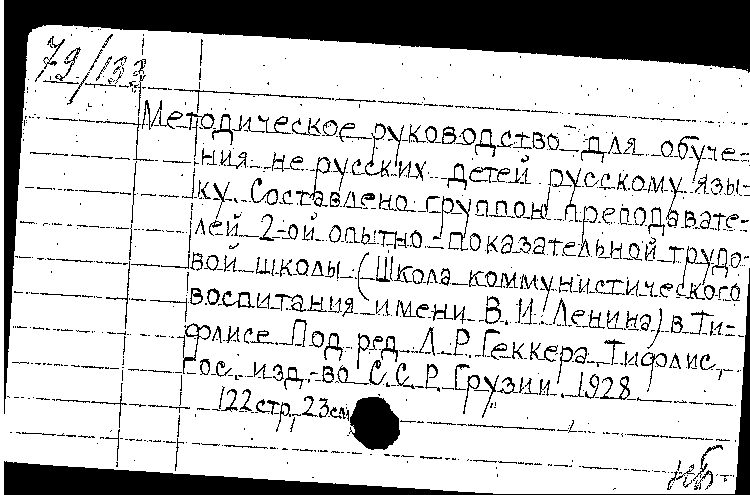 79/133
Методическое руководство для обуче-
ния не русских детей русскому язы-
ку. Составлено группой преподавате-
лей 2-ой опытно-показательной трудо-
вой школы (Школа коммунистического
воспитания имени В. И. Ленина) в Ти-
флисе. Под ред. Л. Р. Геккера. Тифлис,
Гос. изд-во С.С.Р. Грузии. 1928.
122 стр, 23 см